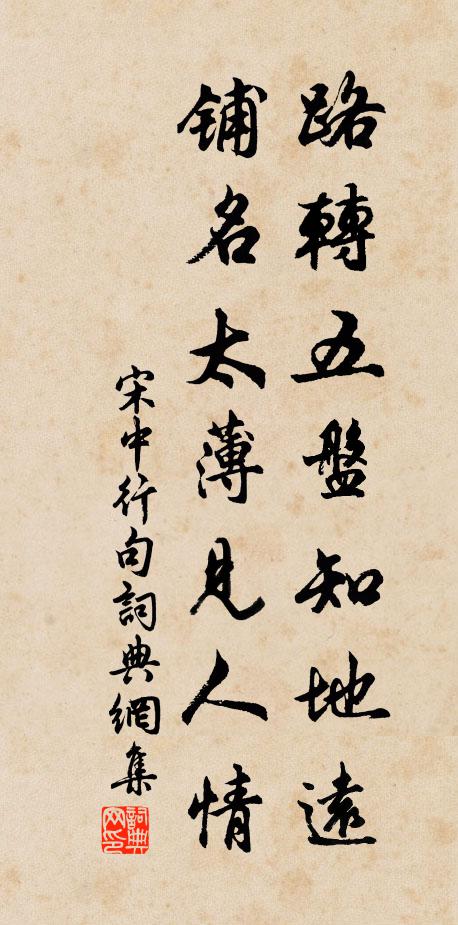 路轉五盤知地遠
鋪名太薄見人情
宋中行句詞典網集
詞典网印